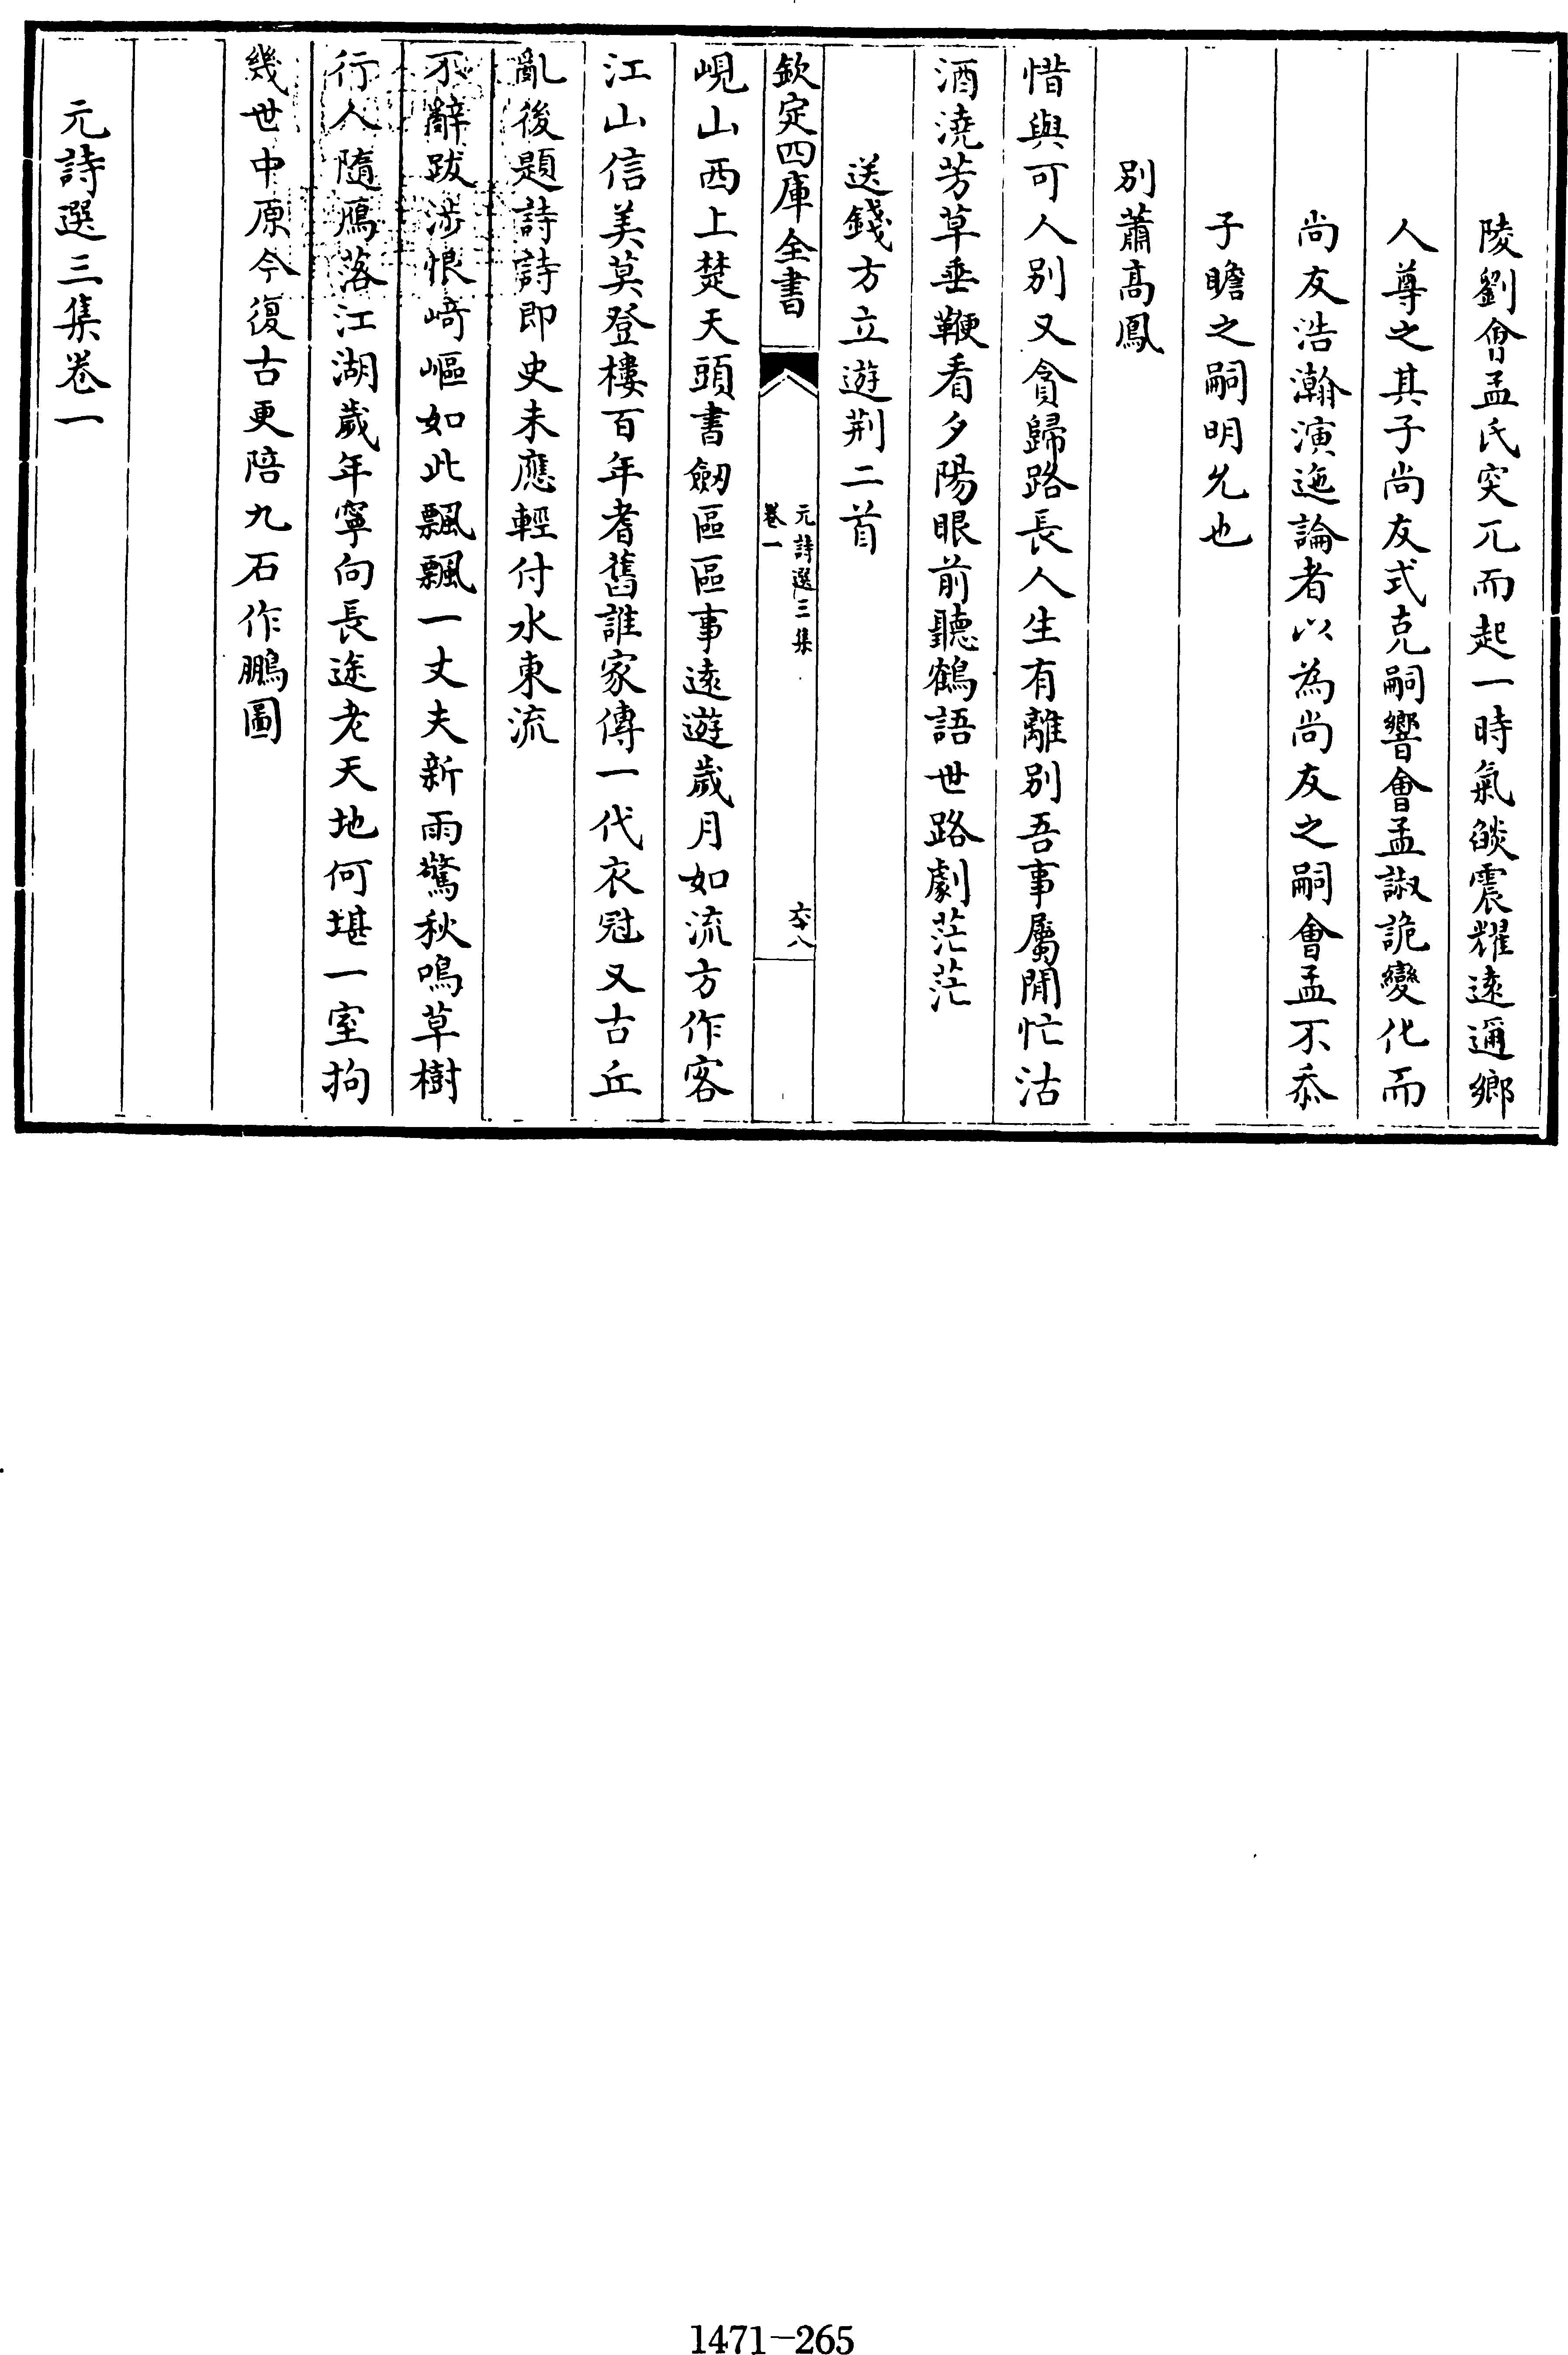 陵劉會孟氏突兀而起一時氣燄震耀遠邇鄉
人尊之其子尚友式克嗣響會孟諔詭變化而
尚友浩瀚演迤論者以為尚友之嗣會孟不忝
子瞻之嗣明允也
別蕭高鳳
惜與可人別又貪歸路長人生有離別吾事屬閒忙沽
酒澆芳草垂鞭看夕陽眼前聽鶴語世路劇茫茫
送錢方立遊荆二首
欽定四庫全書
元詩選三集
卷一
六十八
峴山西上楚天頭書劒區區事遠遊歲月如流方作客
江山信美莫登樓百年耆舊誰家傳一代衣冠又古丘
亂後題詩詩即史未應輕付水東流
不辭跋涉恨﨑嶇如此飄飄一丈夫新雨驚秋鳴草樹
行人隨鴈落江湖歲年寧向長途老天地何堪一室拘
幾世中原今復古更陪九石作鵬圖
元詩選三集卷一
1471-265